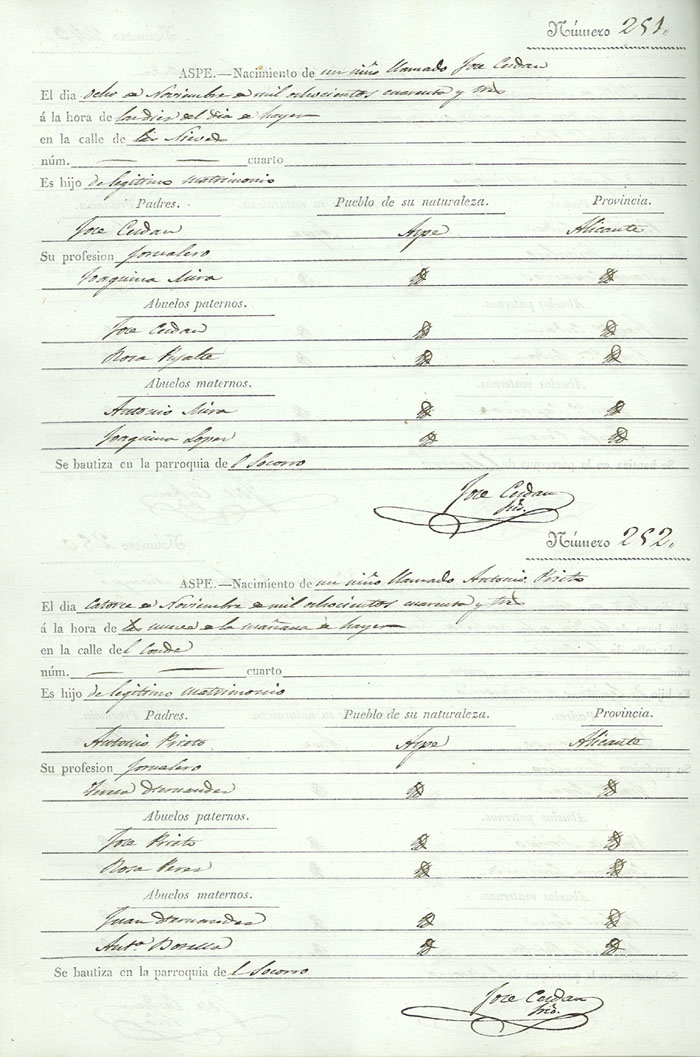 Número 251.
ASPE.—Nacimiento de un niño llamado Jose Cerdan
El dia ocho de Noviembre de mil ochocientos cuarenta y tres
á la hora de las dies del dia de hayer
en la calle de las Nieves
núm. — — cuarto
Es hijo de legitimo matrimonio
Padres. Pueblo de su naturaleza. Provincia.
Jose Cerdan Aspe Alicante
Su profesion Jornalero
Joaquina Mira
Abuelos paternos.
Jose Cerdan
Rosa
Abuelos maternos.
Antonio Mira
Joaquina Lopez
Se bautiza en la parroquia del Socorro
Jose Cerdan
Número 252.
ASPE.—Nacimiento de un niño llamado Antonio Prieto
El dia catorce de Noviembre de mil ochocientos cuarenta y tres
á la hora de las nueve de la mañana de hayer
en la calle del Conde
núm. — — cuarto
Es hijo de legitimo matrimonio
Padres. Pueblo de su naturaleza. Provincia.
Antonio Prieto Aspe Alicante
Su profesion Jornalero
Hernandez
Abuelos paternos.
Jose Prieto
Rosa Peres
Abuelos maternos.
Juan Hernandez
Antª Botella
Se bautiza en la parroquia del Socorro
Jose Cerdan